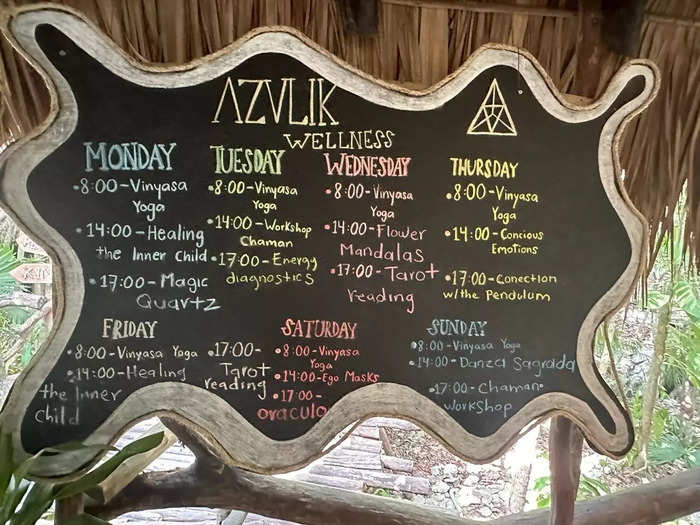 AZULIK
WELLNESS
MONDAY
•8:00-Vinyasa
Yoga
•14:00-Healing
the Inner Child
•17:00-Magic
Quartz
TUESDAY
•8:00-Vinyasa
Yoga
•14:00-Workshop
Chaman
•17:00-Energy
diagnostics
WEDNESDAY
•8:00-Vinyasa
Yoga
•14:00-Flower
Mandalas
•17:00-Tarot
reading
THURSDAY
•8:00-Vinyasa
Yoga
•14:00-Concious
Emotions
•17:00-Conection
w/the Pendulum
FRIDAY
•8:00-Vinyasa Yoga
•14:00-Healing
the Inner
Child
•17:00-
Tarot
reading
SATURDAY
•8:00-Vinyasa
Yoga
•14:00-Ego Masks
•17:00-
oraculo
SUNDAY
•8:00-Vinyasa Yoga
•14:00-Danza Sagrada
•17:00-Chaman
Workshop